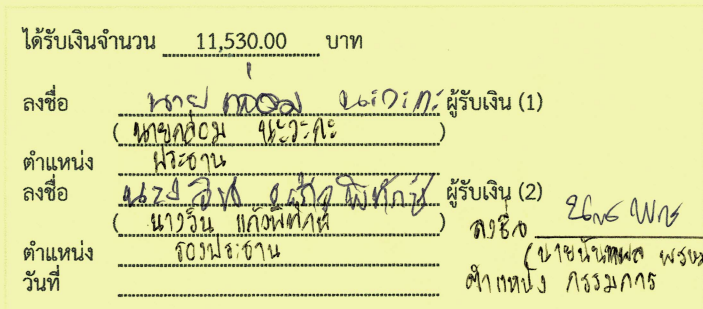 ได้รับเงินจำนวน 11,530.00 บาท
ลงชื่อ นาย กล่อม นะวะกะ ผู้รับเงิน (1)
( นายกล่อม นะวะกะ )
ตำแหน่ง ประธาน
ลงชื่อ นาง วิน แก้วพิทักษ์ ผู้รับเงิน (2)
( นางวิน แก้วพิทักษ์ )
ตำแหน่ง รองประธาน
วันที่
ลงชื่อ
(นายนันทพล
ตำแหน่ง กรรมการ